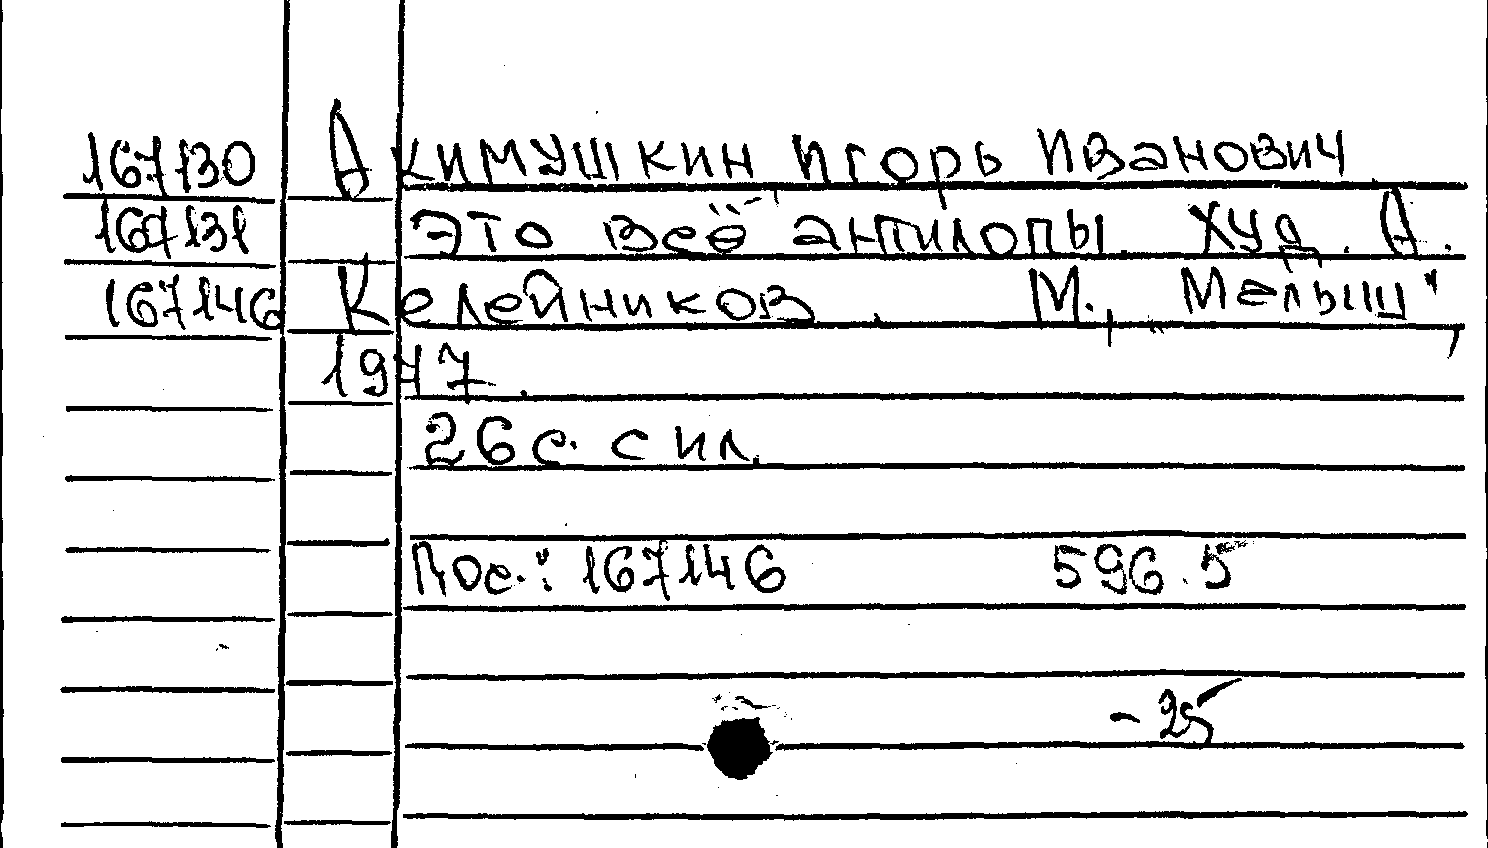 167130 Акимушкин Игорь Иванович
167131 Это всё антилопы. Худ. А.
167146 Келейников. М., „Малыш",
1977.
26 с. с ил.
Пос.: 167146 596.5
- 25